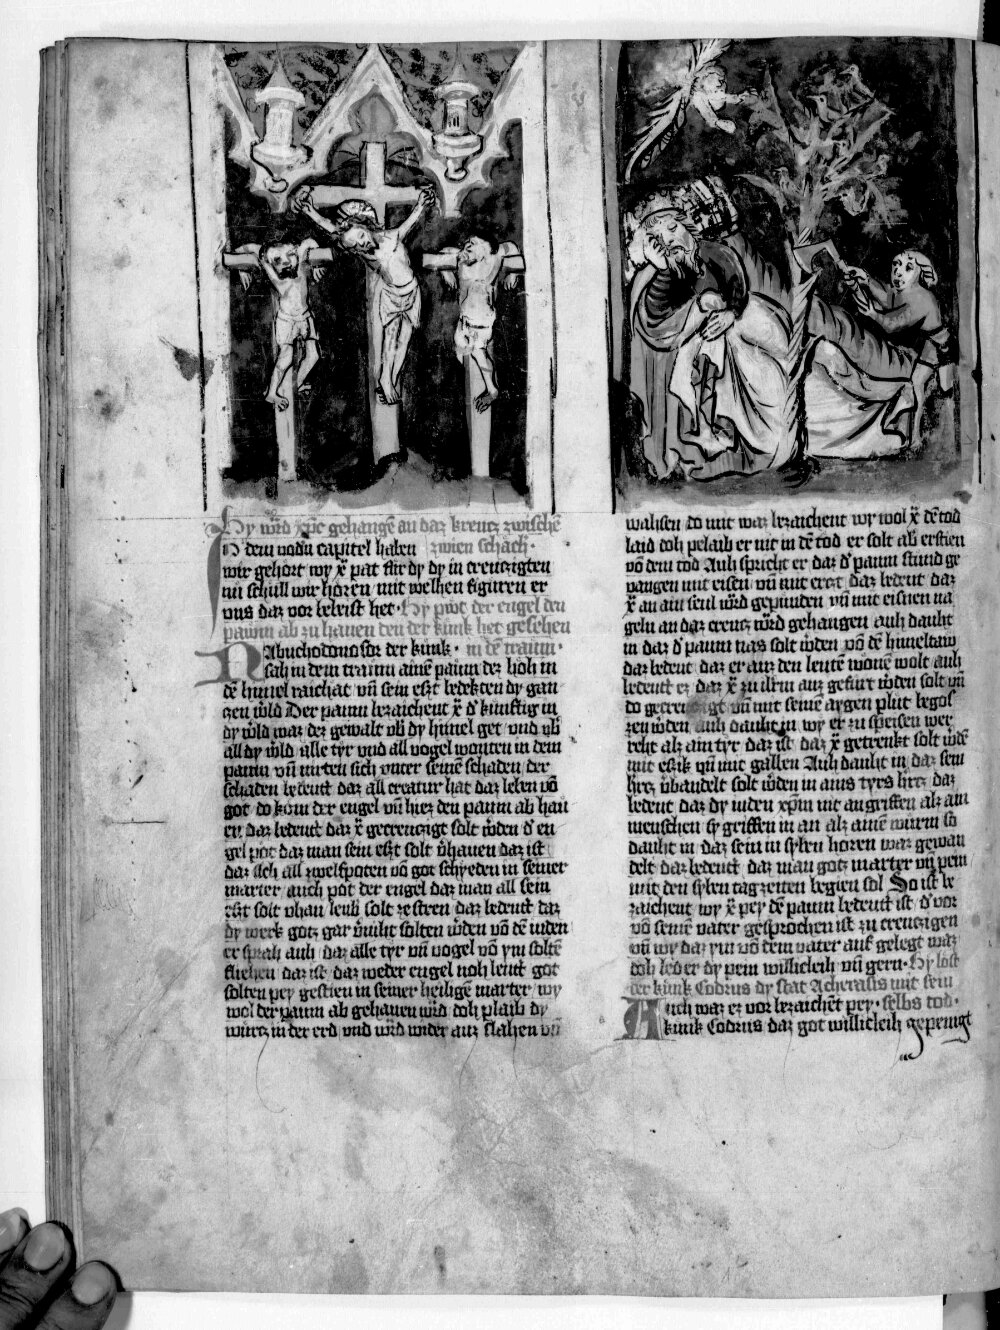 Hy wird xp̄c gehangē an daz kreucz zwischē
In dem vodn̄ capitel haben zwien schach·
wir gehort wy x̄ pat für dy dy in creuczigten
nu schull wir hören mit welhen figuren er
vns daz vor beleist het· Hy pivt der engel den
pawm ab zu hauen den der künk het gesehen
Nabuchodonosor der künk· in dē traum·
sah in dem traum ainē paum der höh in
dē himel raichat vn̄ sein eszt bedekten dy gan
czen w̄ld Der paum bezaichent x̄ d̄ künftig in
dy w̄ld waz dez gewalt vb̄ dy himel get vnd vb̄
all dy w̄ld alle tyr vnd all vogel wonten in dem
paum vn̄ nirten sich vnter seinē schaden der
schaden bedeutt daz all creatur hat daz leben vō
got do kom der engel vn̄ hiez den paum ab hau
en daz bedeutt daz x̄ gecreuczigt solt w̄den d̄ en
gel pot daz man sein eszt solt v̄hauen daz ist
daz sich all zwelfpoten vō got schyeden in seiner
marter auch pot der engel daz man all sein
eszt solt vhau leub solt ze strēn daz bedeutt daz
dy werk gotz gar v̄niht solten w̄den vō dē iuden
er sprah auh daz alle tyr vn̄ vogel vō ym soltē
fliehen daz ist daz weder engel noh leut got
solten pey gestien in seiner heiligē marter wy
wol der paum ab gehauen wird doh plaib dy
wurcz in der erd vnd wird wider auz slahen vn̄
wahsen do mit waz bezaichent wy wol x̄ dē tod
laid doh pelaib er nit in dē tod er solt ab erstien
vō dem tod Auh spricht er daz d̄ paum stund ge
vangen mit eisen vn̄ mit erczt daz bedeut daz
x̄ an ain seul w̄rd gepunden vn̄ mit eisnen na
geln an daz creucz w̄rd gehangen auh dauht
in daz d̄ paum nas solt w̄den vō dē himeltaw
daz bedeut daz er auz den leutē wonē wolt auh
bedeutt ez daz x̄ zu ilrm auz gefurt w̄den solt vn̄
do gecreuczigt vn̄ mit seinē aygen plut begos
zen w̄den auh dauht in wy er zu speisen wer
reht alz ain tyr daz ist daz x̄ getrenkt solt w̄dē
mit eszik vn̄ mit gallen Auh dauht in daz sein
hercz v̄bandelt solt w̄den in ains tyrs hercz daz
bedeut daz dy iuden xp̄m nit angriffen alz ain
menschen sy griffen in an alz ainē wurm so
dauht in daz sein in syben horen waz gewan
delt daz bedeutt daz man gotz marter vn̄ pein
mit den syben tagzeiten begien sol So ist be
zaichent wy x̄ pey dē paum bedeutt ist d̄ vor
vō seinē vater gesprochen ist zu creuczigen
vn̄ wy daz ym vō dem vater auf gelegt waz
doh led er dy pein willicleih vn̄ gern· Hy lost
der künk Codrus dy stat Acherasis mit sein
Auch waz ez vor bezaichēt pey· selbs tod·
künk Codrus daz got willicleih gepeinigt